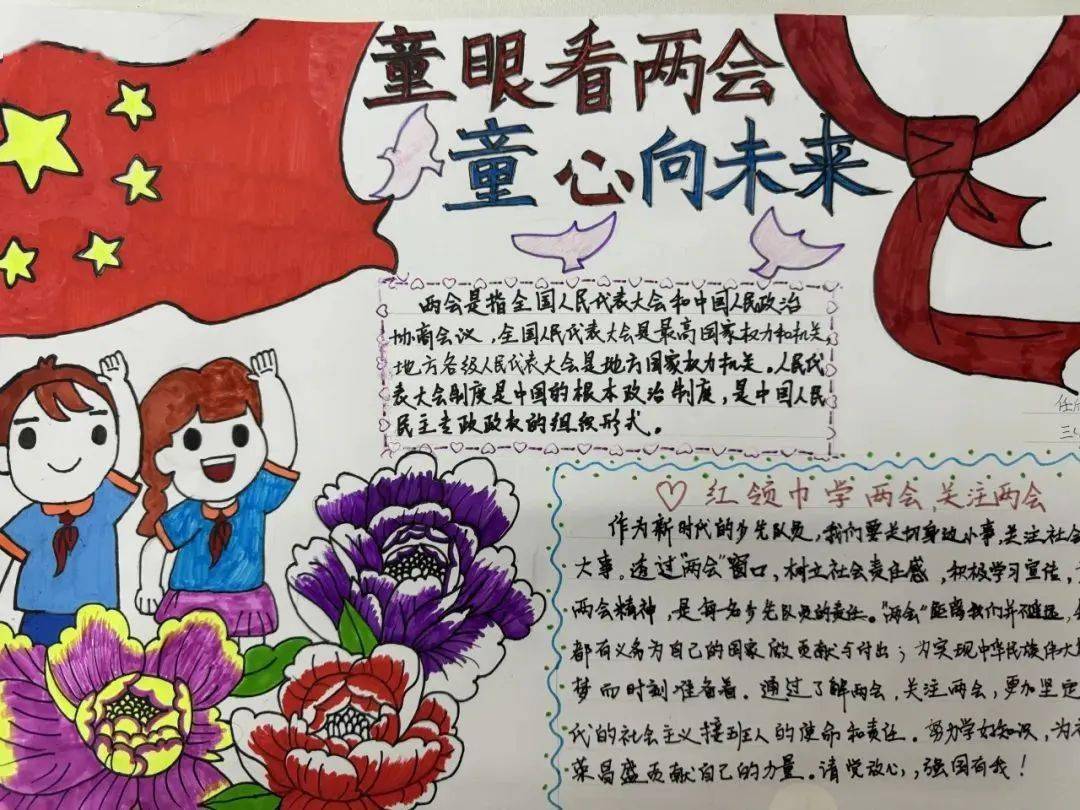 童眼看两会
童心向未来
两会是指全国人民代表大会和中国人民政治
协商会议，全国人民代表大会是最高国家权力和机关，
地方各级人民代表大会是地方国家权力机关。人民代
表大会制度是中国的根本政治制度，是中国人民
民主专政政权的组织形式。
任
三
♡ 红领巾学两会，关注两会
作为新时代的少先队员，我们要关切身边小事，关注社会
大事。透过“两会”窗口，树立社会责任感，积极学习宣传，
两会精神，是每名少先队员的责任。“两会”距离我们并不遥远，
都有义务为自己的国家做贡献与付出；为实现中华民族伟大
梦而时刻准备着。通过了解两会，关注两会，更加坚定
代的社会主义接班人的使命和责任。努力学好知识，为
荣昌盛贡献自己的力量。请党放心，，强国有我！